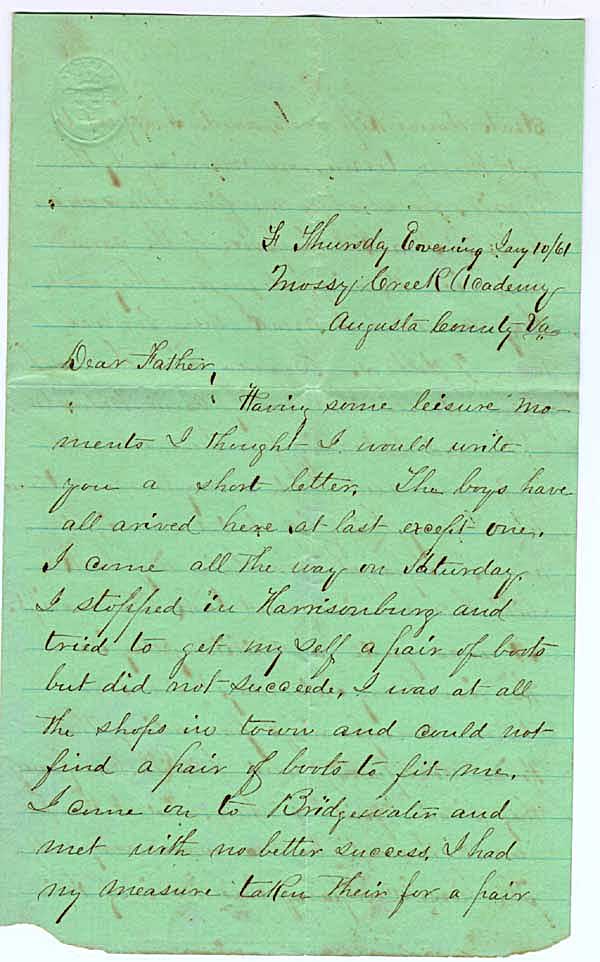 Thursday Evening Jany 10/61
Mossy Creek Academy
Augusta County Va
Dear Father!
Having some leisure mo-
ments I thought I would write
you a short letter. The boys have
all arived here at last except one.
I come all the way on Saturday.
I stopped in Harrisonburg and
tried to get my self a pair of boots
but did not succeede, I was at all
the shops in town and could not
find a pair of boots to fit me.
I come on to Bridgewater and
met with no better success. I had
my measure taken their for a pair